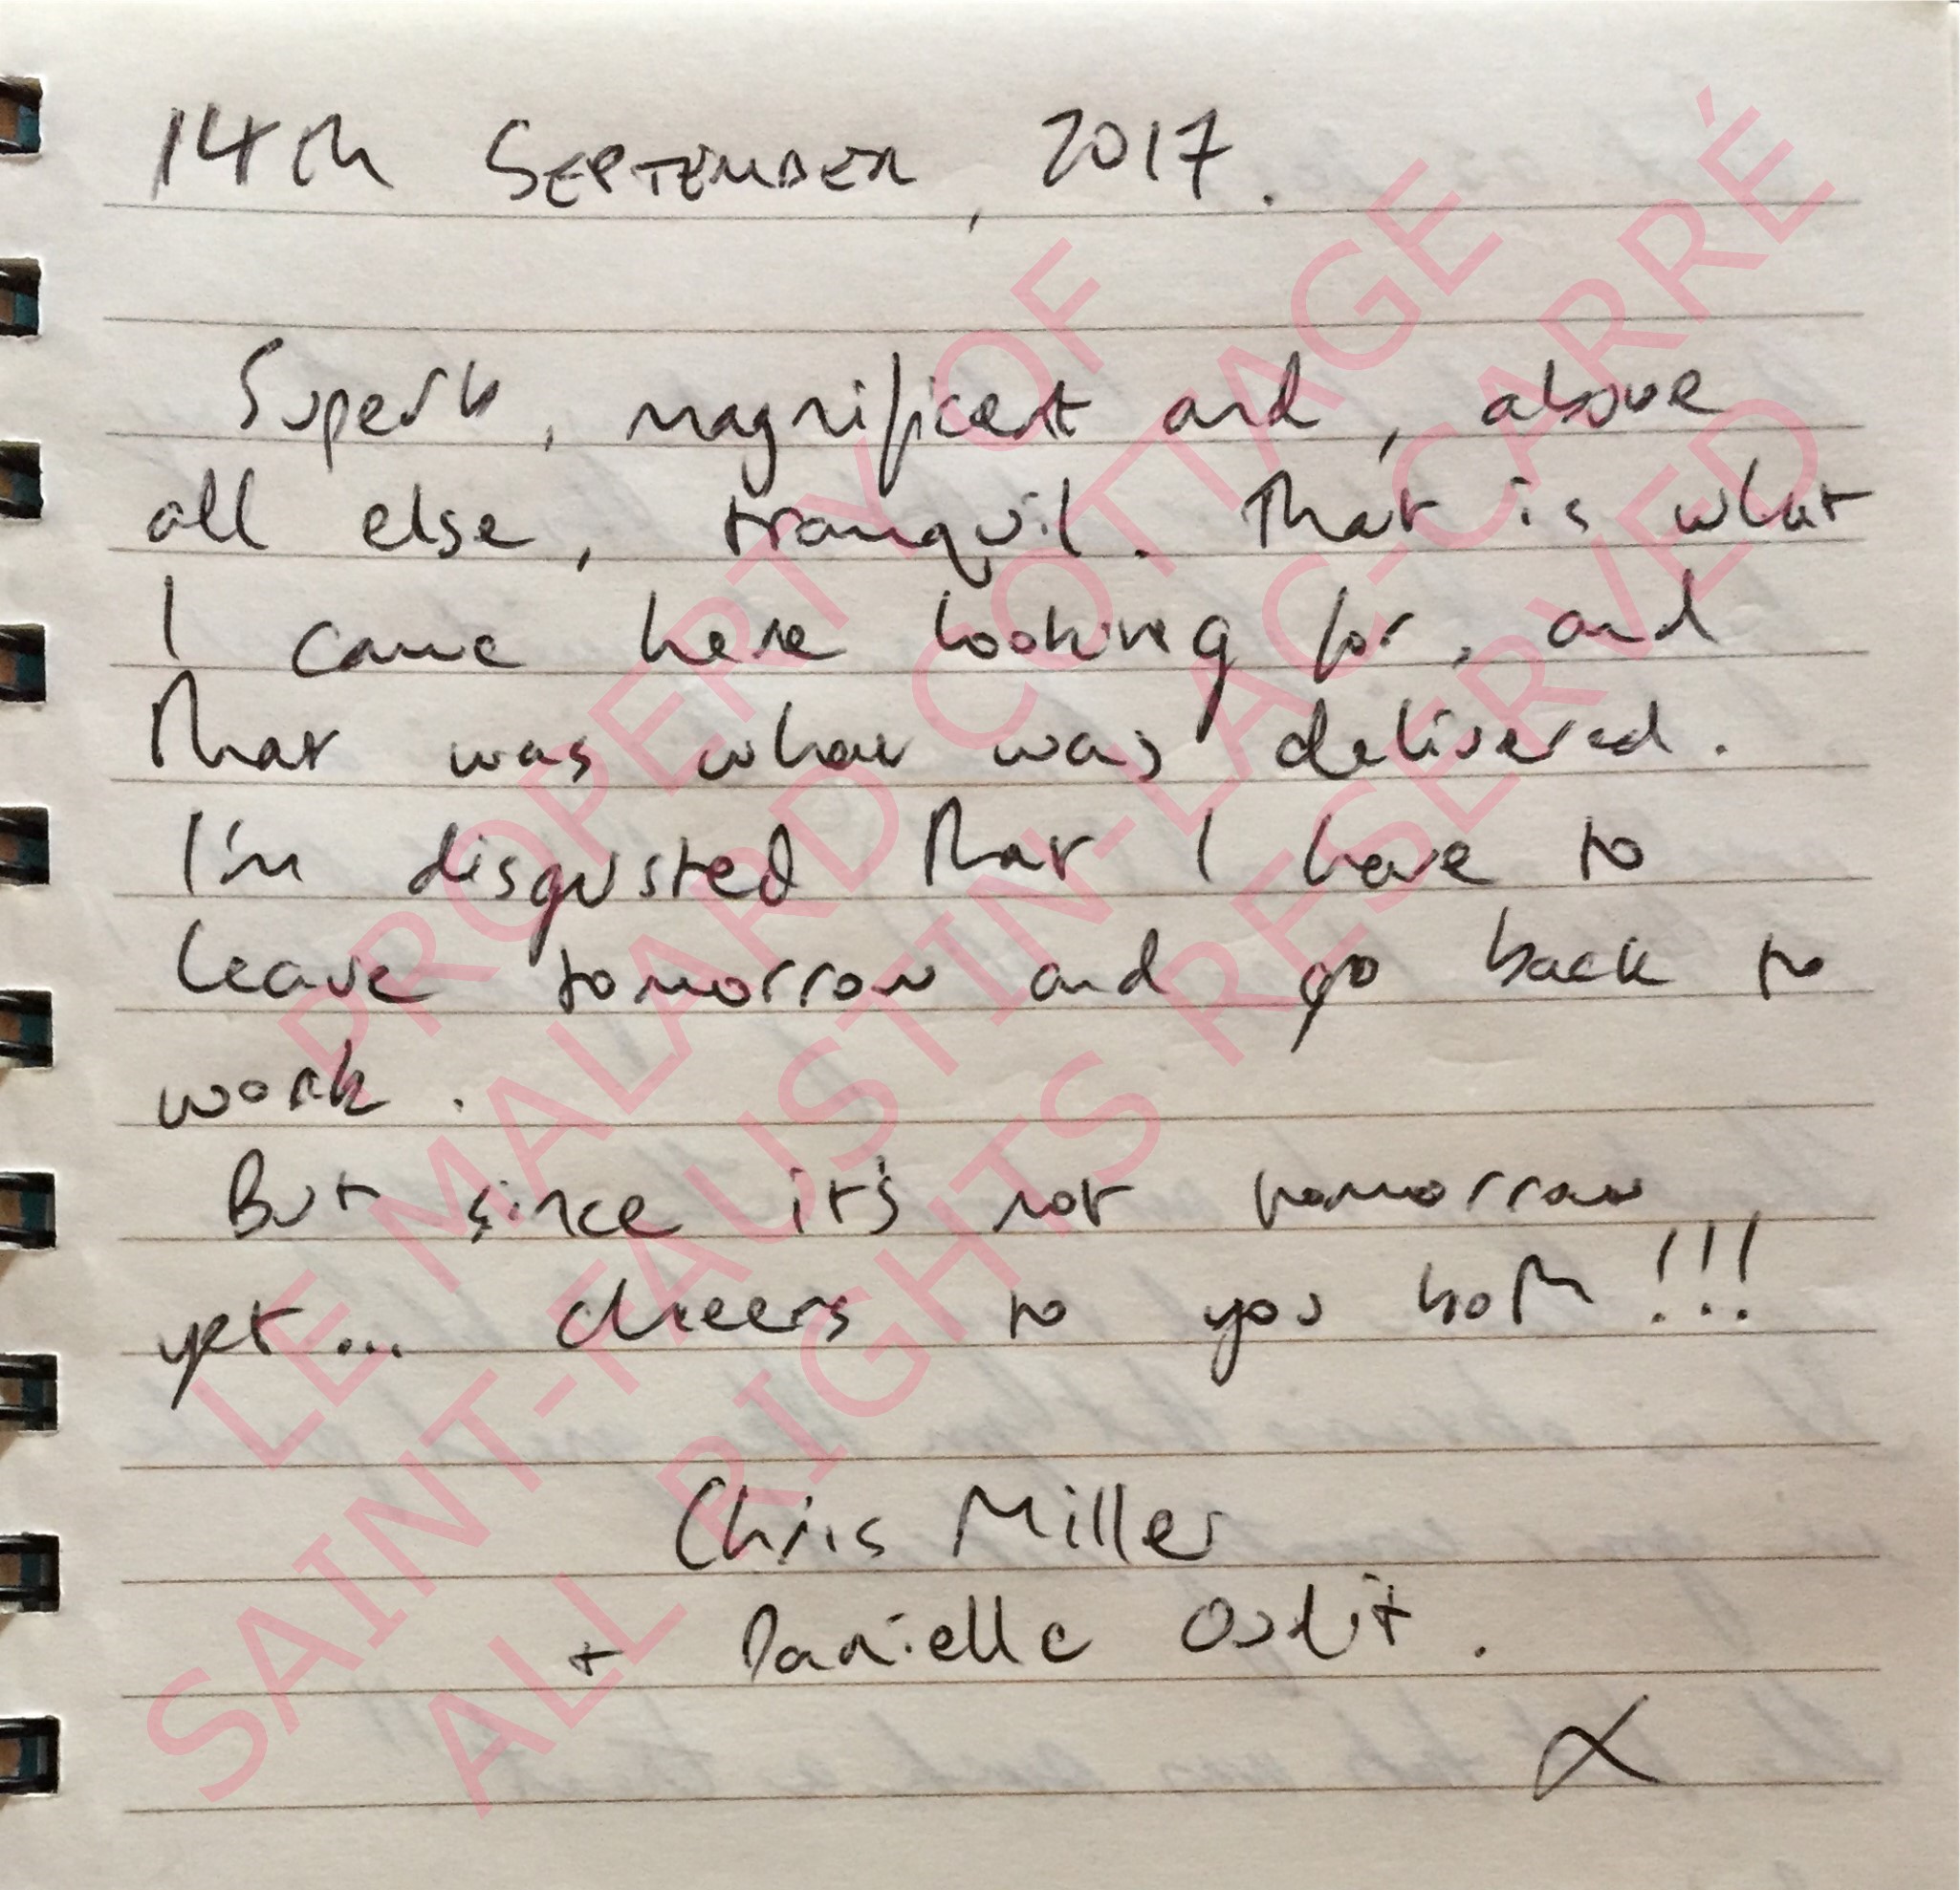 14th SEPTEMBER, 2017.
Superb, magnificent and, above
all else, tranquil. That is what
I came here looking for, and
that was what was delivered.
I'm disgusted that I have to
leave tomorrow and go back to
work.
But since it's not tomorrow
yet... cheers to you both!!!
Chris Miller
+ Danielle
x
PROPERTY OF
LE MALARD COTTAGE
SAINT-FAUSTIN-LAC-CARRÈ
ALL RIGHTS RESERVED